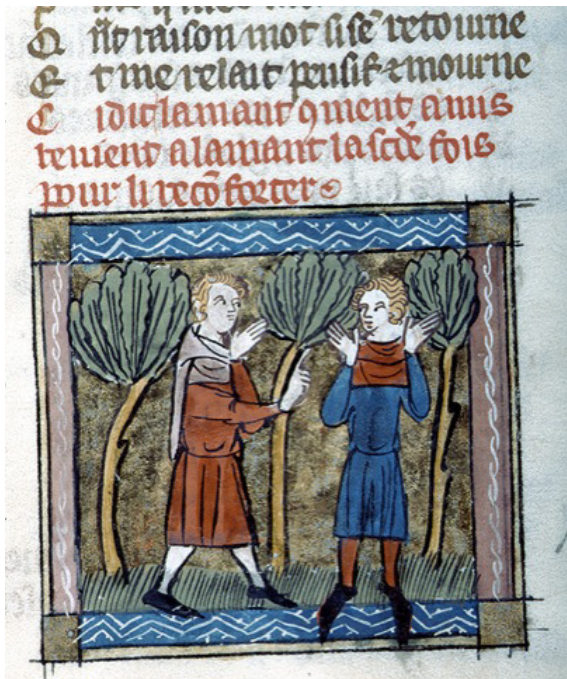 Q ñt raison mot si sē retourne
E t me relait pensif ⁊ mourne
C i dit lamant ꝯment amis
reuient a lamant la scd̄e fois
pour li recōforter